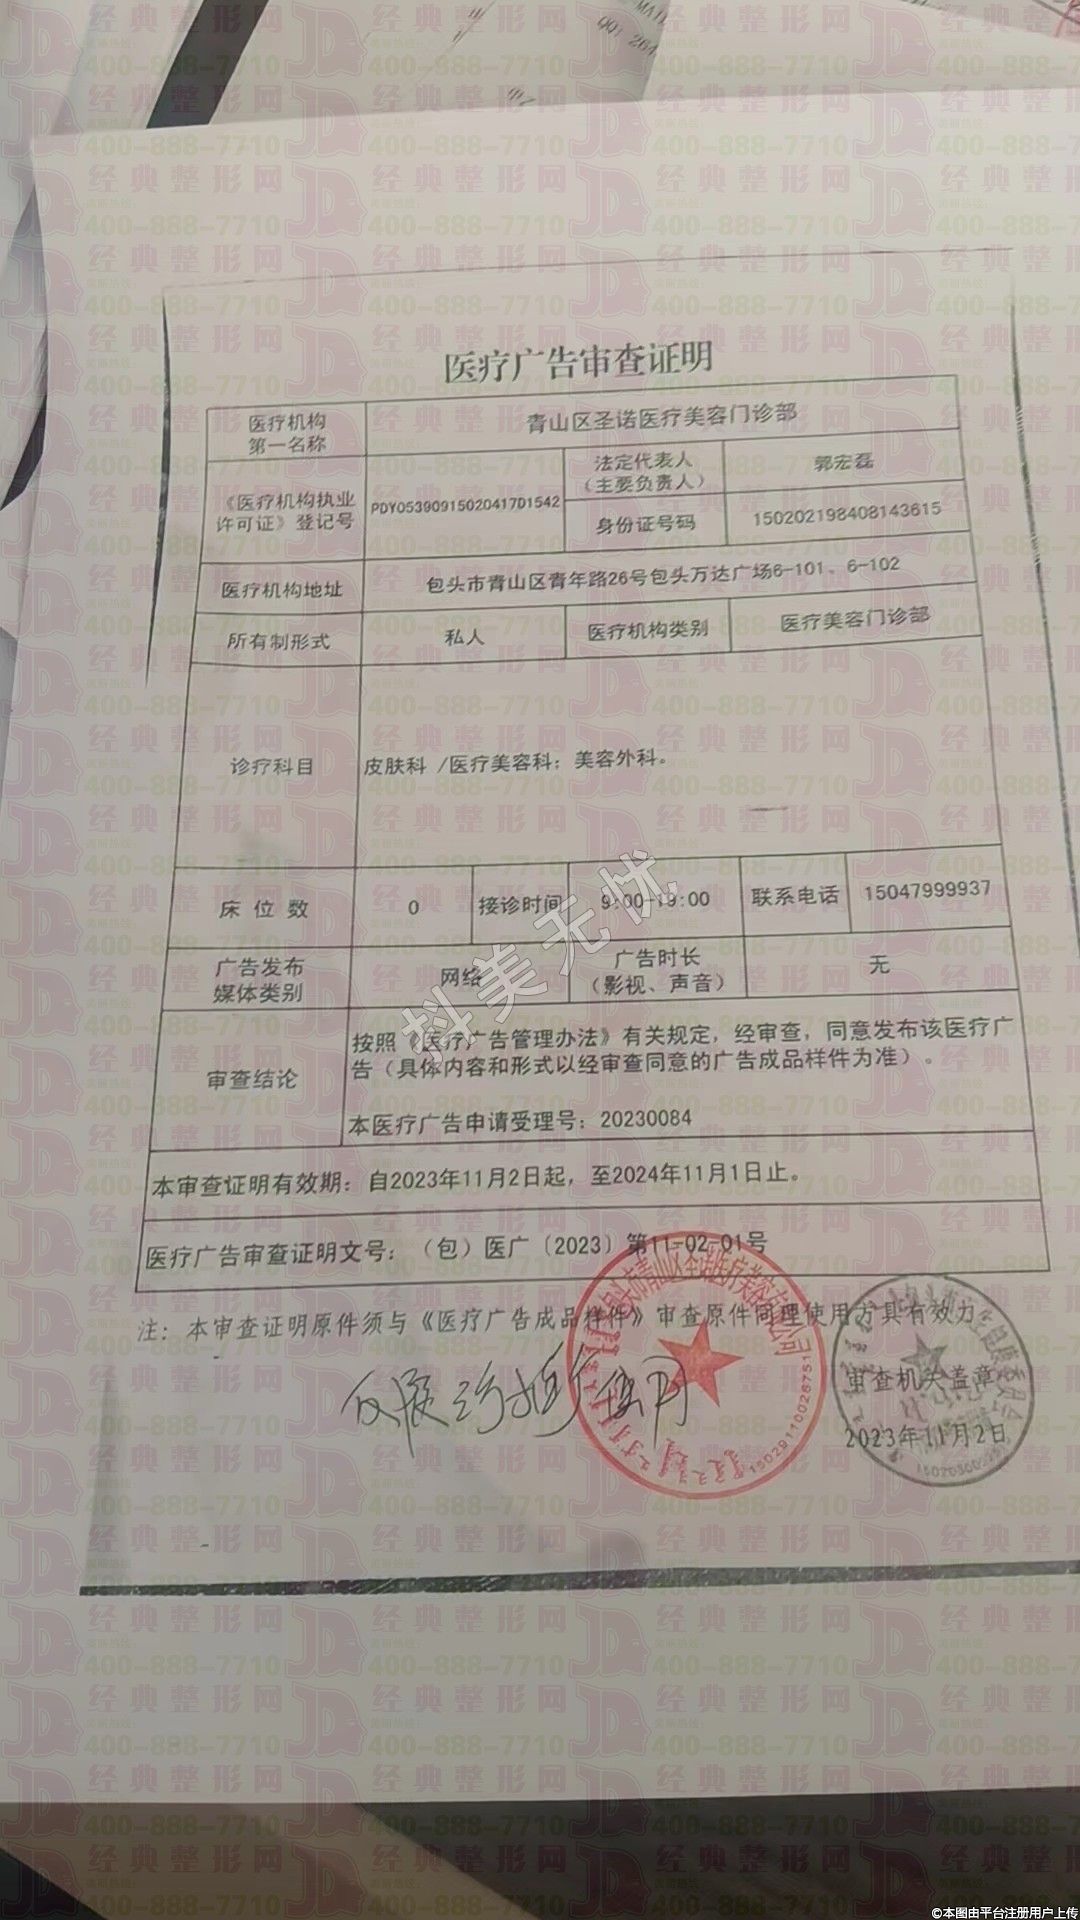 MAIL
QQ: 264
医疗广告审查证明
医疗机构
第一名称
青山区圣诺医疗美容门诊部
《医疗机构执业
许可证》登记号
PDY05390915020417D1542
法定代表人
（主要负责人）
郭宏磊
身份证号码
150202198408143615
医疗机构地址
包头市青山区青年路26号包头万达广场6-101、6-102
所有制形式
私人
医疗机构类别
医疗美容门诊部
诊疗科目
皮肤科 /医疗美容科；美容外科。
床 位 数
0
接诊时间
9:00-19:00
联系电话
15047999937
广告发布
媒体类别
网络
广告时长
（影视、声音）
无
审查结论
按照《医疗广告管理办法》有关规定，经审查，同意发布该医疗广
告（具体内容和形式以经审查同意的广告成品样件为准）。
本医疗广告申请受理号：20230084
本审查证明有效期：自2023年11月2日起，至2024年11月1日止。
医疗广告审查证明文号：（包）医广〔2023〕第11-02-01号
注：本审查证明原件须与《医疗广告成品样件》审查原件同理使用方具有效力
审查机关盖章
2023年11月2日
1502911002675
抖美无忧
经典整形网
美丽热线：
400-888-7710
©本图由平台注册用户上传